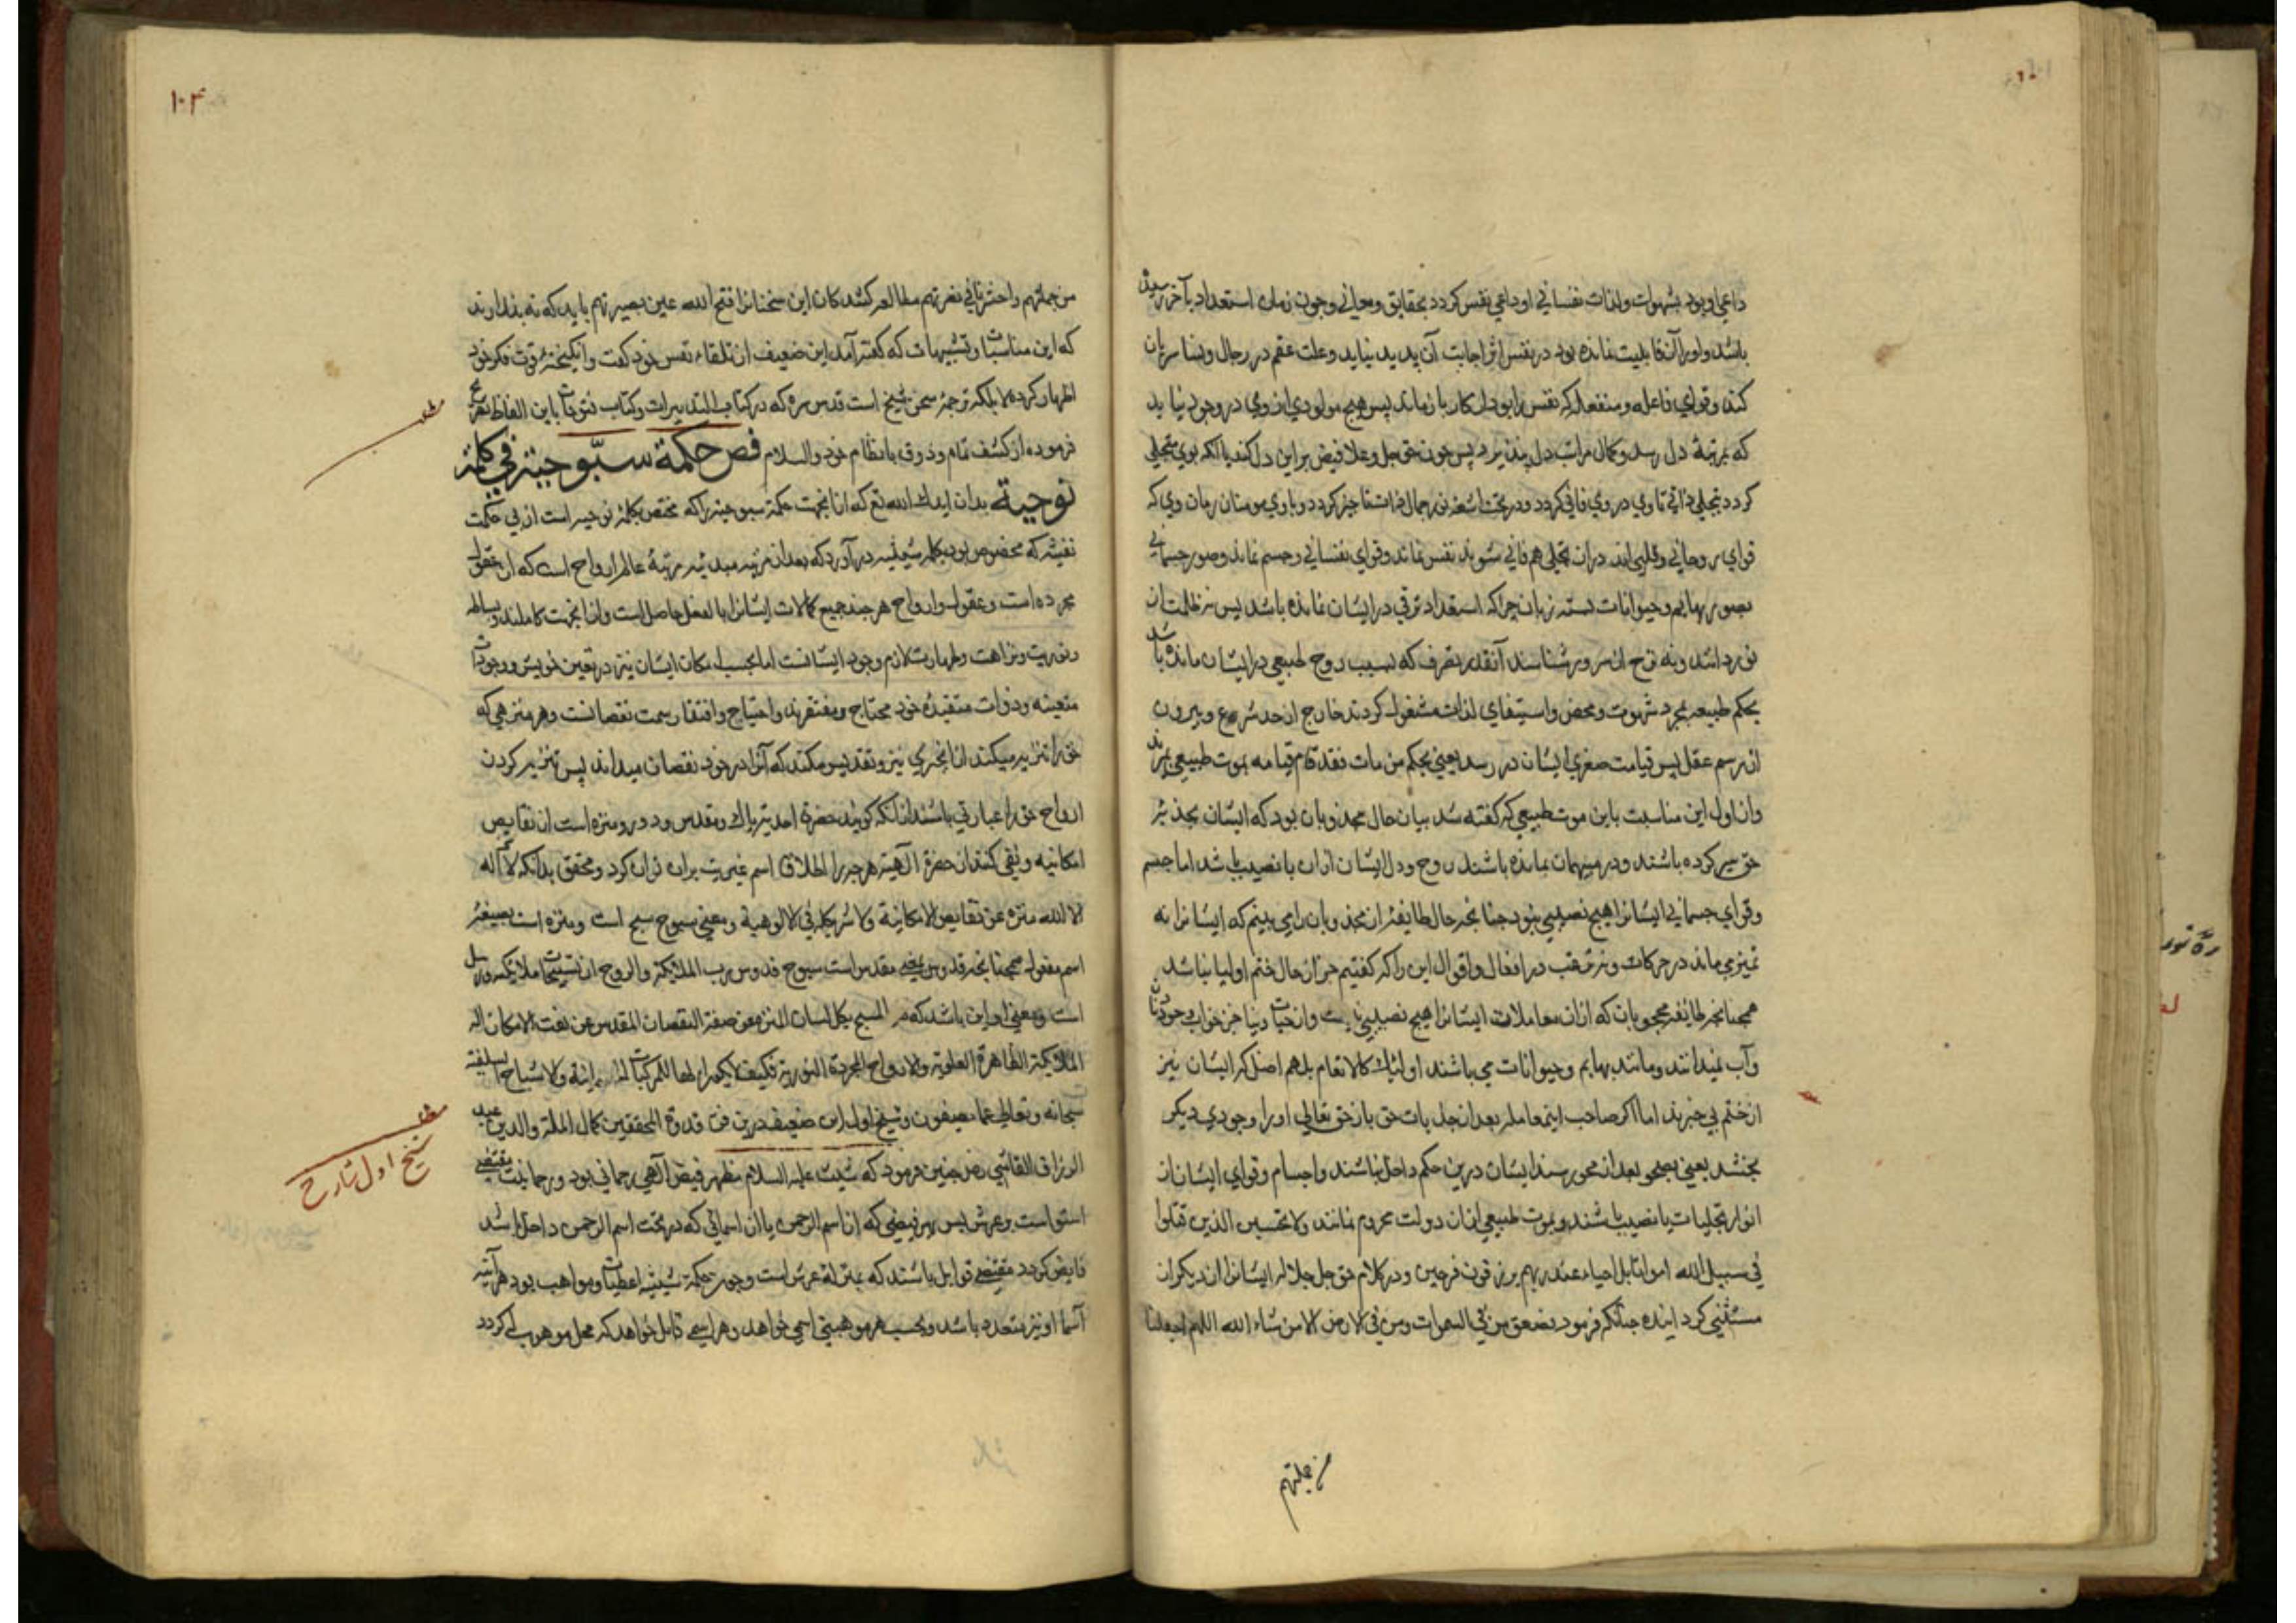 داعی او بود بشهوات ولذات نفسانی او داعی نفس کردد بحقایق ومعانی وچون زمان استعداد بآخر رسیده
باشد واورا آن قابلیت نمانده بود در نفس اثر اجابت آن پدید نیاید وعلت عقم در رجال ونسا سریان
کند وقوای فاعله ومنفعله که نفس را بود از کار باز ماند پس هیچ مولودی از وی در وجود نیاید
که بمرتبهٔ دل رسد وکمال مراتب دل پذیرد پس چون حق جل وعلا فیض براین دل کند یا آنکه بوی متجلی
کردد بتجلی ذاتی تا وی در وی فانی کردد ودر تحت اشعهٔ نور جمال ذات ناچیز کردد وبا وی مومنان زمان وی که
قوای روحانی وقلبی اند دران تجلی هم فانی شوند نفس نماند وقوای نفسانی وجسم نماند وصور جسمانی
بصور بهایم وحیوانات بسته زبان چرا که استعداد ترقی در ایشان نمانده باشد پس نه ظلمت از
نور دانند ونه ترح از سرور شناسند آنقدر تصرف که بسبب روح طبیعی در ایشان مانده باشد
بحکم طبیعت بمجرد شهوت ومحض واستیفای لذات مشغول کردند خارج از حد شرع وبیرون
از رسم عقل پس قیامت صغری ایشان در رسد یعنی بحکم من مات فقد قام قیامه بموت طبیعی بمیرند
وازاول این مناسبت باین موت طبیعی که کفته شد بیان حال مجذوبان بود که ایشان بجذبهٔ
حق سیر کرده باشند ودر میهمان بمانده باشند روح ودل ایشان ازان با نصیب باشد اما جسم
وقوای جسمانی ایشانرا هیچ نصیبی نبود چنانچه حال طایفهٔ از مجذوبان را می بینم که ایشانرا نه
تمیز می ماند در حرکات ونه ترتیب در افعال واقوال این را که کفتیم جز از حال ختم اولیا نباشد
همچنانچه طایفهٔ محجوبان که ازان معاملات ایشانرا هیچ نصیبی نیست واز حیات دنیا جز خواب وخور
وآب نمیدانند ومانند بهایم وحیوانات می باشند اولئک کالانعام بل هم اضل که ایشان نیز
از ختم بی خبرند اما اکر صاحب اینمعامله بعد از جذبات حق باز حق تعالی اورا وجودی دیکر
بخشد یعنی بصحو بعد از محو رسند ایشان درین حکم داخل نباشند واجسام وقوای ایشان از
انوار تجلیات با نصیب باشند وبموت طبیعی ازان دولت محروم نمانند ولا تحسبن الذین قتلوا
فی سبیل الله امواتا بل احیاء عند ربهم یرزقون فرحین ودر کلام حق جل جلاله ایشانرا از دیکران
مستثنی کرد اینده چنانکه فرمود فصعق من فی السموات ومن فی الارض الا من شاء الله اللهم اجعلنا
من جملتهم
۱۰۴
من جملتهم واحشرنا فی زمرتهم مطالعه کنندکان این سخنانرا فتح الله عین بصیرتهم باید که نه پندارند
که این مناسبات وتشبیهات که کفته آمد این ضعیف از تلقاء نفس خود کفت وانکیختهٔ قوت فکر خود
اظهار کرده لا بلکه ترجمهٔ سخن شیخ است قدس سره که در کتاب التدبیرات وکتاب فتوحات باین الفاظ تصریح
فرموده از کشف تمام وذوق بانظام خود والسلام فص حکمة سبّوحیة فی کلمة
نوحیة بدان ایدك الله تع که ازانجهت حکمة سبوحیه را که مختص بکلمهٔ نوحیه است از پی حکمت
نفثیه که مخصوص بود بکلمهٔ شیثیه در آورد که بعد از مرتبهٔ مبدئیه مرتبهٔ عالم ارواح است که آن عقول
مجرده است وعقول وارواح هر چند جمیع کمالات ایشانرا بالفعل حاصل است وازانجهت کاملند وبساطت
ونوریت ونزاهت وطهارت لازم وجود ایشانست اما بحسب امکان ایشان نیز در تعین خویش ووجودات
متعینه وذوات متقیدهٔ خود محتاج ومفتقرند واحتیاج وافتقار سمت نقصانست وهر منزهی که
حق را تنزیه میکند ازانچیزی تنزیه وتقدیس میکند که آنرا در خود نقصان میداند پس تنزیه کردن
ارواح حق را عبارتی باشند از آنکه کویند حضرة احدیه پاك ومقدس ودور ومنزه است از نقایص
امکانیه ونفی کنند از حضرة آلهیه هرچه را اطلاق اسم غیریت بران توان کرد ومحقق بدانکه لا آله
الا الله منزه عن نقایص الامکانیة ولا شریك له فی الالوهیة ومعنی سبوح مسبح است ومنزه است بصیغهٔ
اسم مفعول همچنانچه قدوس بمعنی مقدس است سبوح قدوس رب الملایکة والروح از تسبیحات ملایکه ورسل
است ومعنی او این باشد که هو المسبح بکل لسان المنزه عن صفة النقصان المقدس عن نعت الامکان اله
الملایکة الطاهرة العلویة والارواح المجردة النوریة فکیف لایکون الها للمرکبات الجسمانیة والاشباح السفلیة
سبحانه وتعالی عما یصفون وشیخ اول این ضعیف درین فن قدوة المحققین کمال الملة والدین عبد
الرزاق القاشی رض چنین فرمود که شیث علیه السلام مظهر فیض آلهی رحمانی بود ورحمانیت مقتضی
استواست بر عرش پس هر فیضی که از اسم الرحمن یا از اسمائی که در تحت اسم الرحمن داخل باشد
فایض کردد مقتضی قوابل باشند که بمنزلهٔ عرش است وچون حکمة شیثیه اعطیات ومواهب بود هرآئینه
آسما او نیز متعدد باشد وبحسب هر موهبتی اسمی خواهد وهر اسمی قابل خواهد که محل موهوب له کردد
مطلب
مطلب
شیخ اول شارح